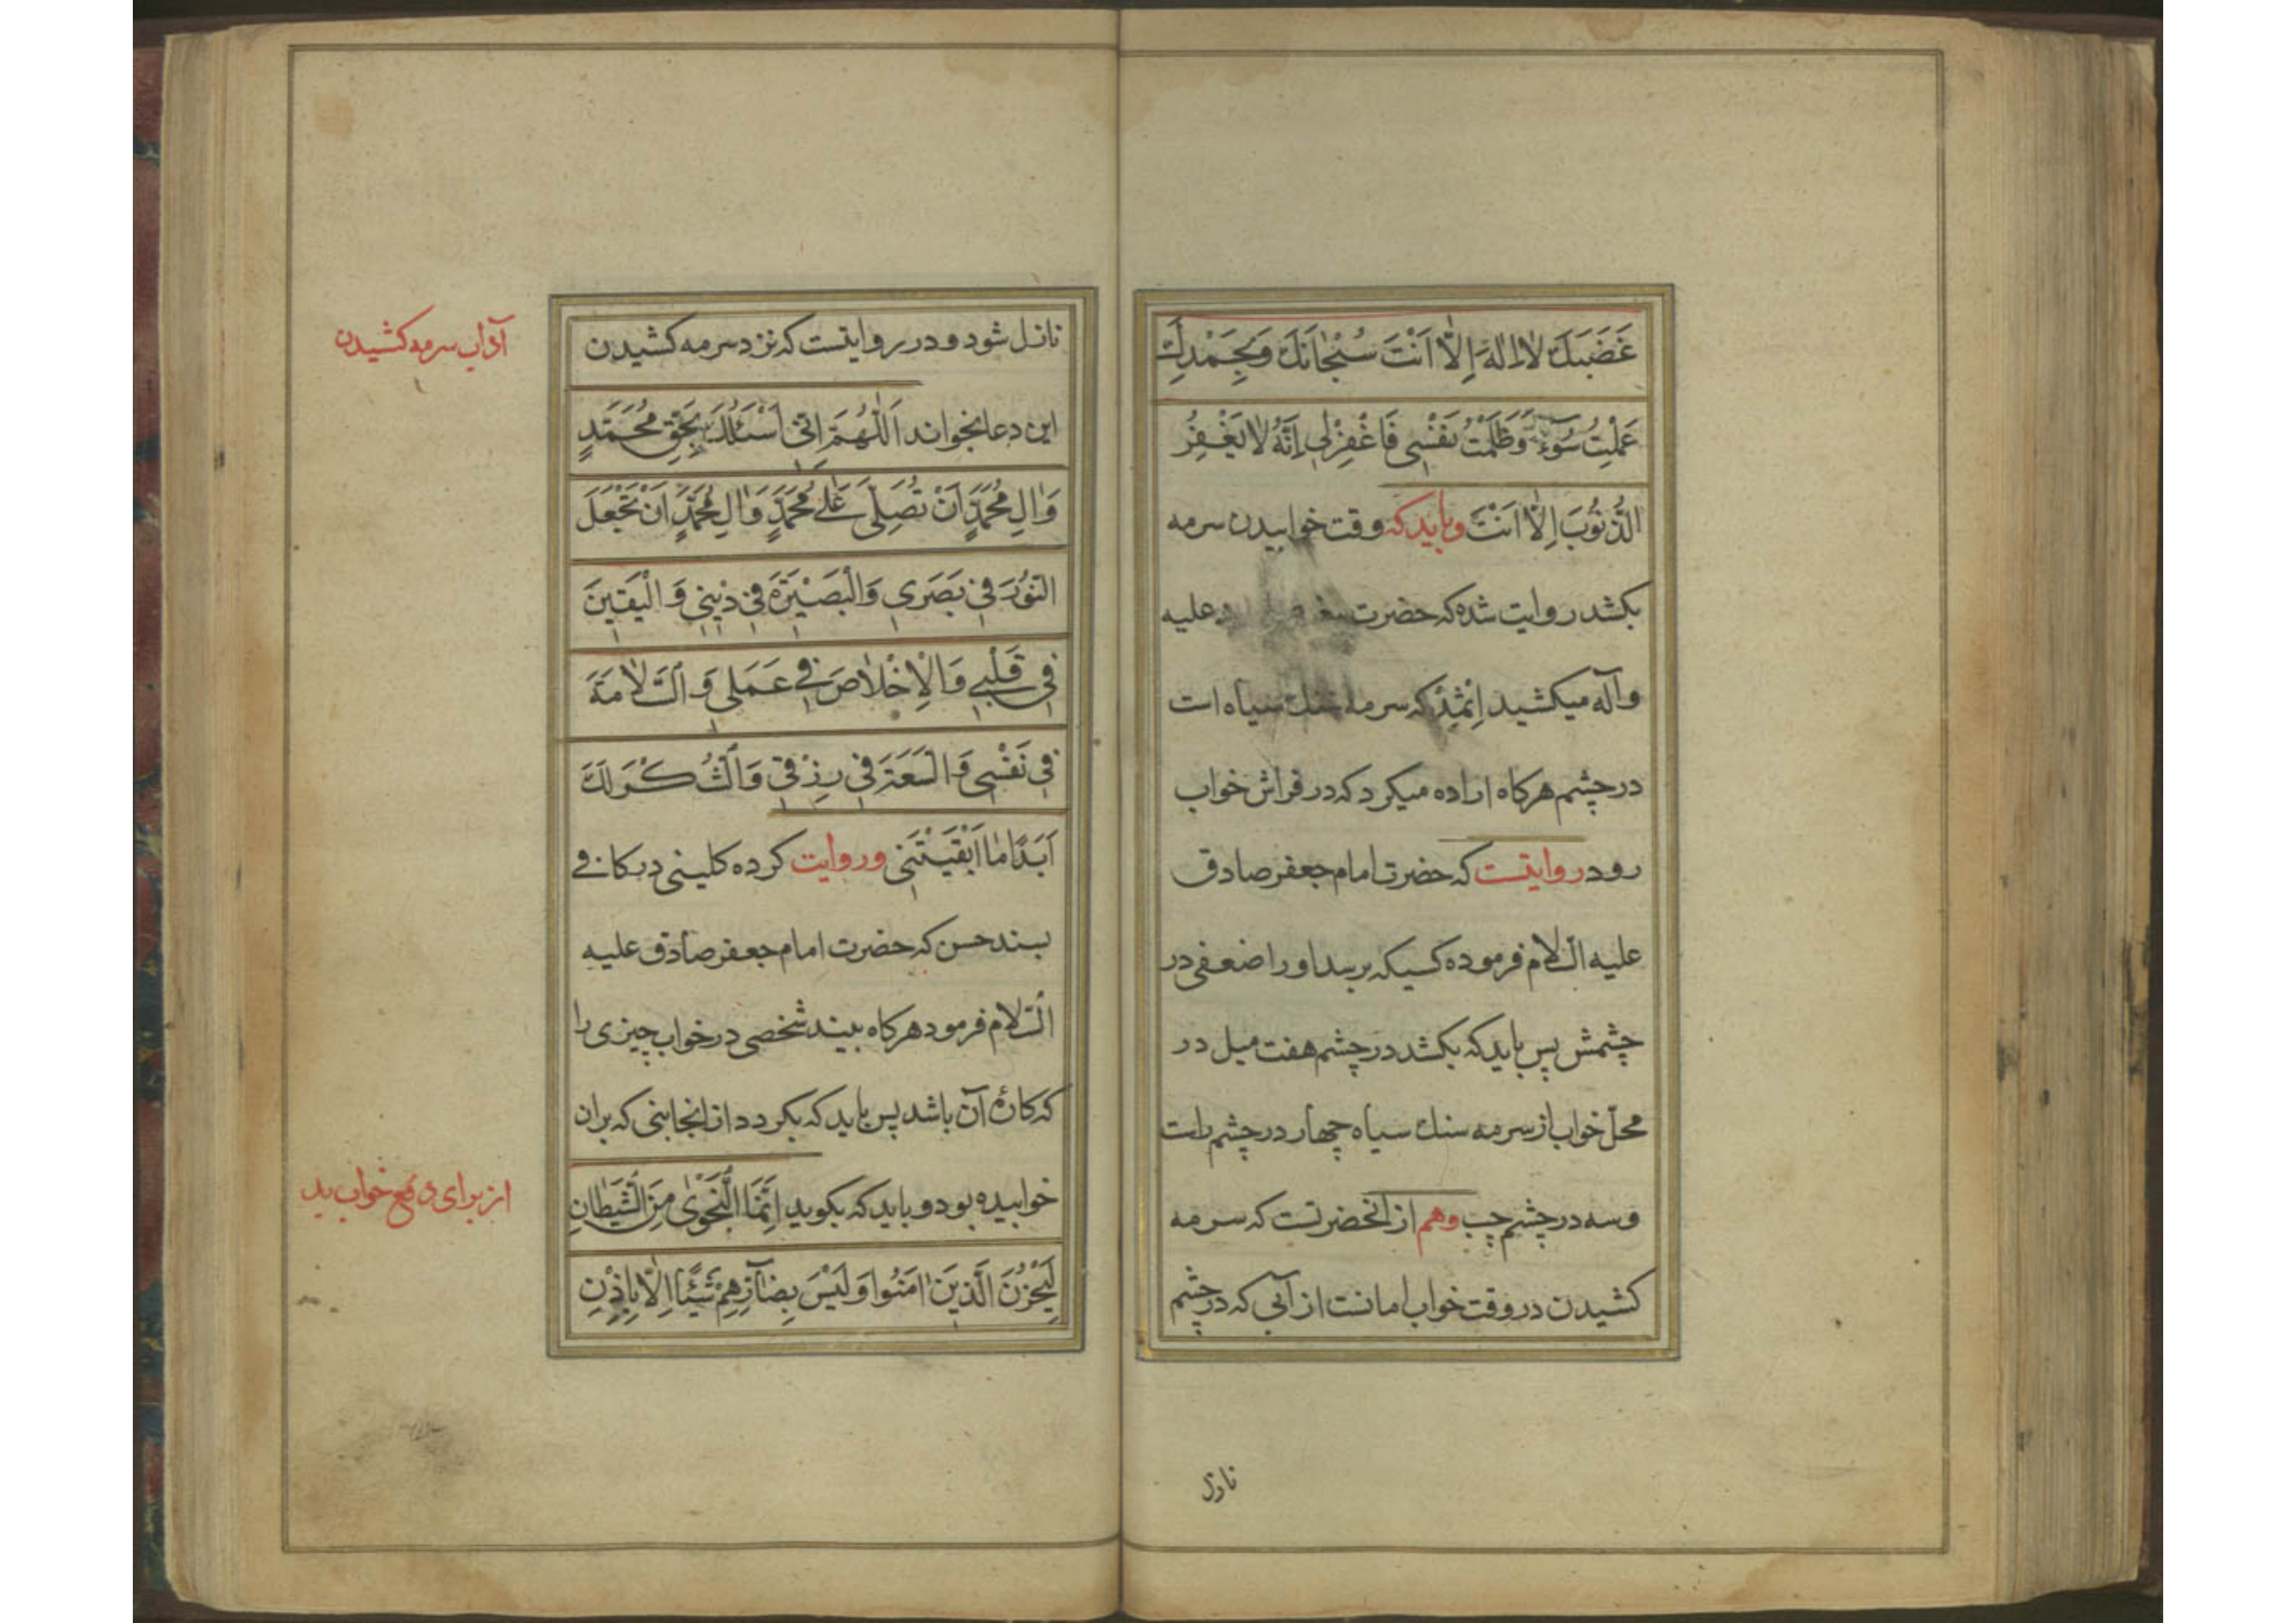 غَضَبَكَ لا اِلٰهَ اِلّا اَنْتَ سُبْحٰانَكَ وَبِحَمْدِكَ
عَمِلْتُ سُوۤءً وَظَلَمْتُ نَفْسِى فَاغْفِرْلِى اِنَّهُ لا يَغْفِرُ
الذُّنُوبَ اِلّا اَنْتَ وبايد كه وقت خوابيدن سرمه
بكشد روايت شده كه حضرت عليه
وآله ميكشيد اِثْمِدْ كه سرمه سنك سياه است
در چشم هركاه اراده ميكرد كه در فراش خواب
رود روايتست كه حضرت امام جعفر صادق
عليه السّلام فرموده كسيكه برسد اورا ضعفى در
چشمش پس بايد كه بكشد در چشم هفت ميل در
محلّ خواب از سرمه سنك سياه چهار در چشم راست
وسه در چشم چپ وهم از انحضرتست كه سرمه
كشيدن در وقت خواب امانست از آبى كه در چشم
نازل
نازل شود ودر روايتست كه نزد سرمه كشيدن
آداب سرمه كشيدن
اين دعا بخواند اَللّٰهُمَّ اِنّى اَسْئَلُكَ بِحَقِّ مُحَمَّدٍ
وَاٰلِ مُحَمَّدٍ اَنْ تُصَلِّىَ عَلٰى مُحَمَّدٍ وَاٰلِ مُحَمَّدٍ اَنْ تَجْعَلَ
النّوُرَ فى بَصَرى وَالْبَصيْرَةَ فى دْينى وَ الْيَقينَ
فى قَلْبى وَالْاِخْلٰاصَ فى عَمَلى وَ السَّلٰامَةَ
فى نَفْسى وَ السَّعَةَ فى رِزْقى وَالشُّكْرَ لَكَ
اَبَدًا مٰا اَبْقَيْتَنى وروايت كرده كلينى در كافى
بسند حسن كه حضرت امام جعفر صادق عليه
السّلام فرمود هركاه بيند شخصى در خواب چيزى را
كه كاره آن باشد پس بايد كه بكردد از انجانبى كه بران
خوابيده بود وبايد كه بكويد اِنَّمَا النَّجْوٰى مِنَ الشَّيْطٰانِ
از براى دفع خواب بد
لِيَحْزُنَ الَّذينَ اٰمَنُوا وَلَيْسَ بِضٰآرِّهِمْ شَيْئًا اِلّا بِاِذْنِ